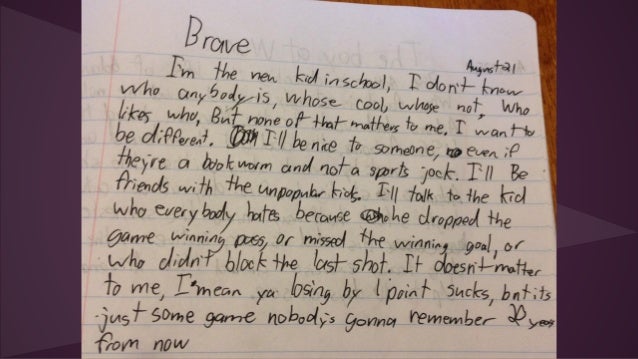 Brave
August 21
I'm the new kid in school, I don't know
who anybody is, whose cool, whose not, Who
likes who, But none of that matters to me. I want to
be different. I'll be nice to someone, even if
they're a bookworm and not a sports jock. I'll Be
friends with the unpopular kids. I'll talk to the kid
who everybody hates because he dropped the
game winning pass, or missed the winning goal, or
who didn't block the last shot. It doesn't matter
to me, I mean ya losing by 1 point sucks, but its
just some game nobody's gonna remember 20 years
from now